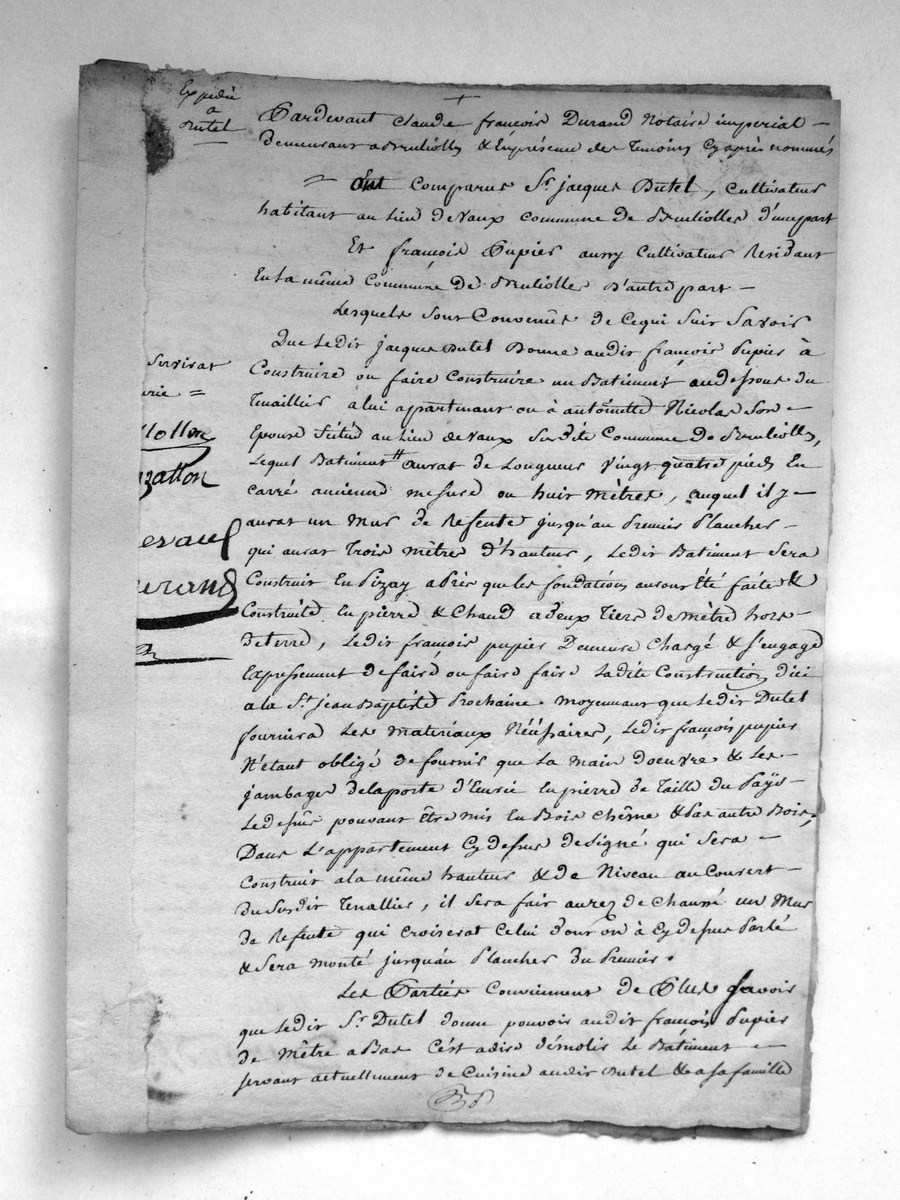 Expédié
a
Dutel
Pardevant claude françois Durand Notaire imperial –
Demeurant a Bruliolles & Enprésence des Temoins Cyaprès nommés
= Ont comparus Sr. jacques Dutel, cultivateur
habitant au lieu devaux commune de Brulioles d'unepart
Et françois Pupier aussy Cultivateur Residant
En la même Commune de Brulioller D'autre part –
Lesquels Sont Convenus de Cequi Suit Savoir
Que Ledit jacques Dutel Donne audit françois Pupier à
Construire ou faire Construire un Batiment audessous du
Tenaillier a lui apartenant ou à antoinette Nicolas Son =
Epouse Situé au Lieu devaux Susdite Commune de Brulioles,
Lequel Batiment aurat de Longueur vingt quatre pieds En
Carré ancienne mesure ou huit mètres, auquel il y =
aurat un Mur de Refente jusqu'au Premier Plancher –
qui aurat Trois mètres d'hauteur, Ledit Batiment Sera
Construit En Pizay aPrès que les fondations auront Été faite &
Construite En pierre & Chaud a deux tiers de mètre hors
De terre, Ledit françois pupier Demeure Chargé & s'engage
Expressement de faire ou faire faire Ladite Construction d'ici
a la St. jean Baptiste Prochaine moyennant que Ledit Dutel
fournira Les materiaux Nécéssaires, Ledit françois pupier
N'étant obligé de fournir que La main d'oeuvre & Les =
jambages delaporte d'Entrée En pierre de Taille du Païs
Ledessus pouvant être mis En Bois chêne & Pas autre Bois,
Dans L'appartement Cydessus designé qui Sera =
Construit ala même hauteur & de Niveau au Couvert –
Du Susdit Tenallier, il Sera fait aurez de Chaussé un Mur
de Refente qui croiserat Celui dont on à Cydessus Parlé
& Sera monté jusquau Plancher du Premier.
Les Parties Conviennent de Plus Savoir
que Ledit Sr. Dutel donne pouvoir audit françois Pupier
de mêtre aBas C'est adire démolir Le Batiment =
servant actuellement de Cuisine audit Dutel & a sa famille
Servirat
=